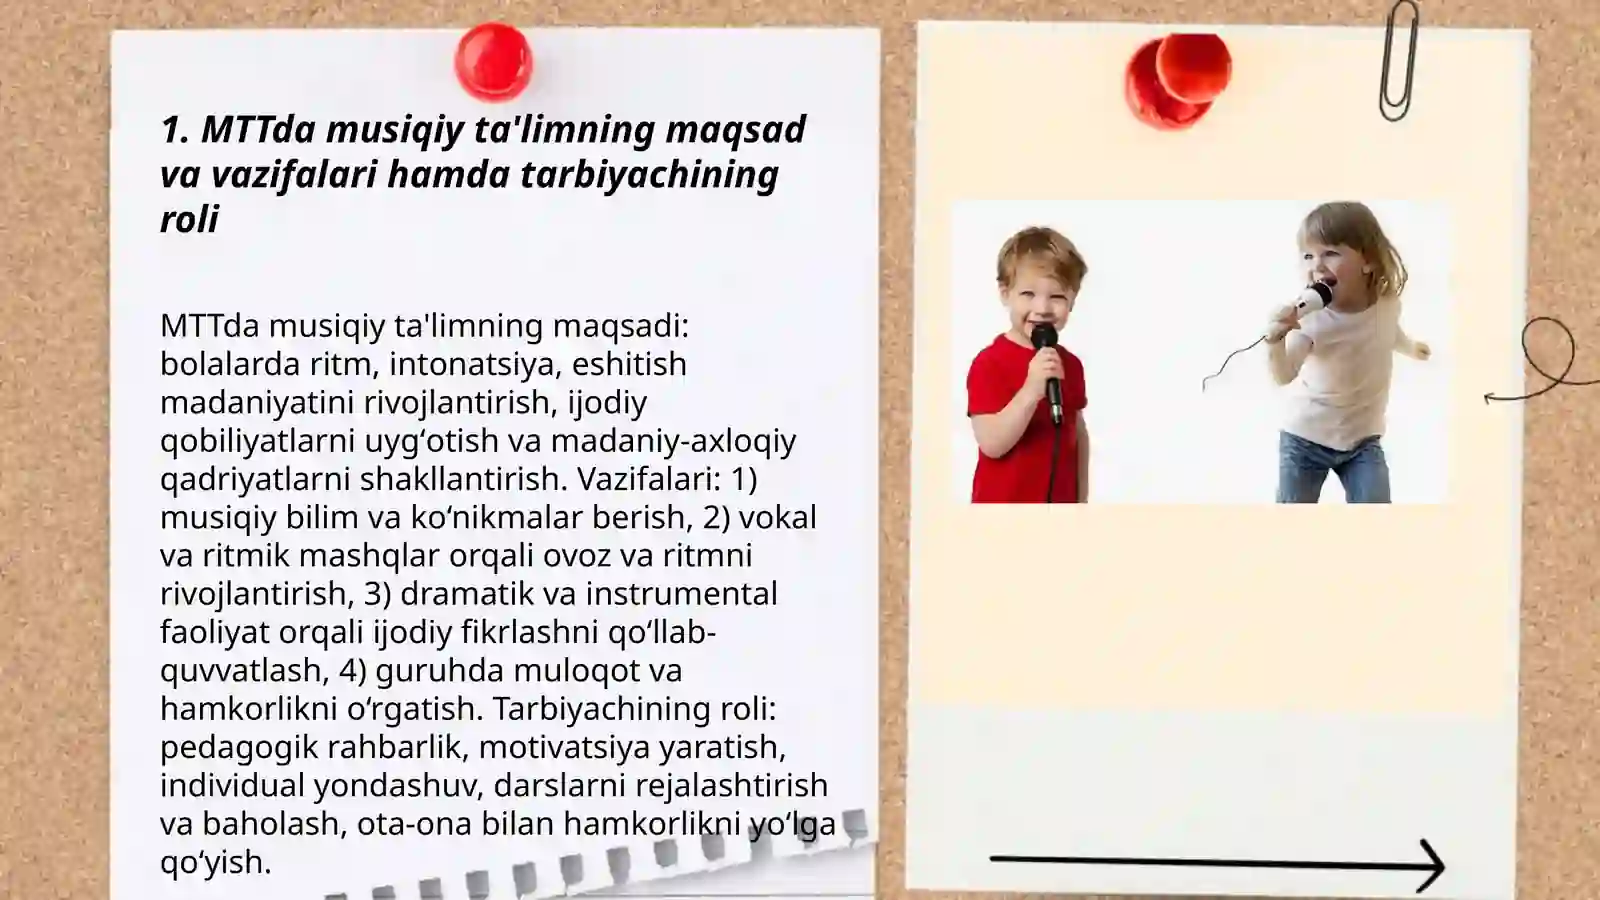 1. MTTda musiqiy ta'limning maqsad
va vazifalari hamda tarbiyachining
roli
MTTda musiqiy ta'limning maqsadi:
bolalarda ritm, intonatsiya, eshitish
madaniyatini rivojlantirish, ijodiy
qobiliyatlarni uyg‘otish va madaniy-axloqiy
qadriyatlarni shakllantirish. Vazifalari: 1)
musiqiy bilim va ko‘nikmalar berish, 2) vokal
va ritmik mashqlar orqali ovoz va ritmni
rivojlantirish, 3) dramatik va instrumental
faoliyat orqali ijodiy fikrlashni qo‘llab-
quvvatlash, 4) guruhda muloqot va
hamkorlikni o‘rgatish. Tarbiyachining roli:
pedagogik rahbarlik, motivatsiya yaratish,
individual yondashuv, darslarni rejalashtirish
va baholash, ota-ona bilan hamkorlikni yo‘lga
qo‘yish.